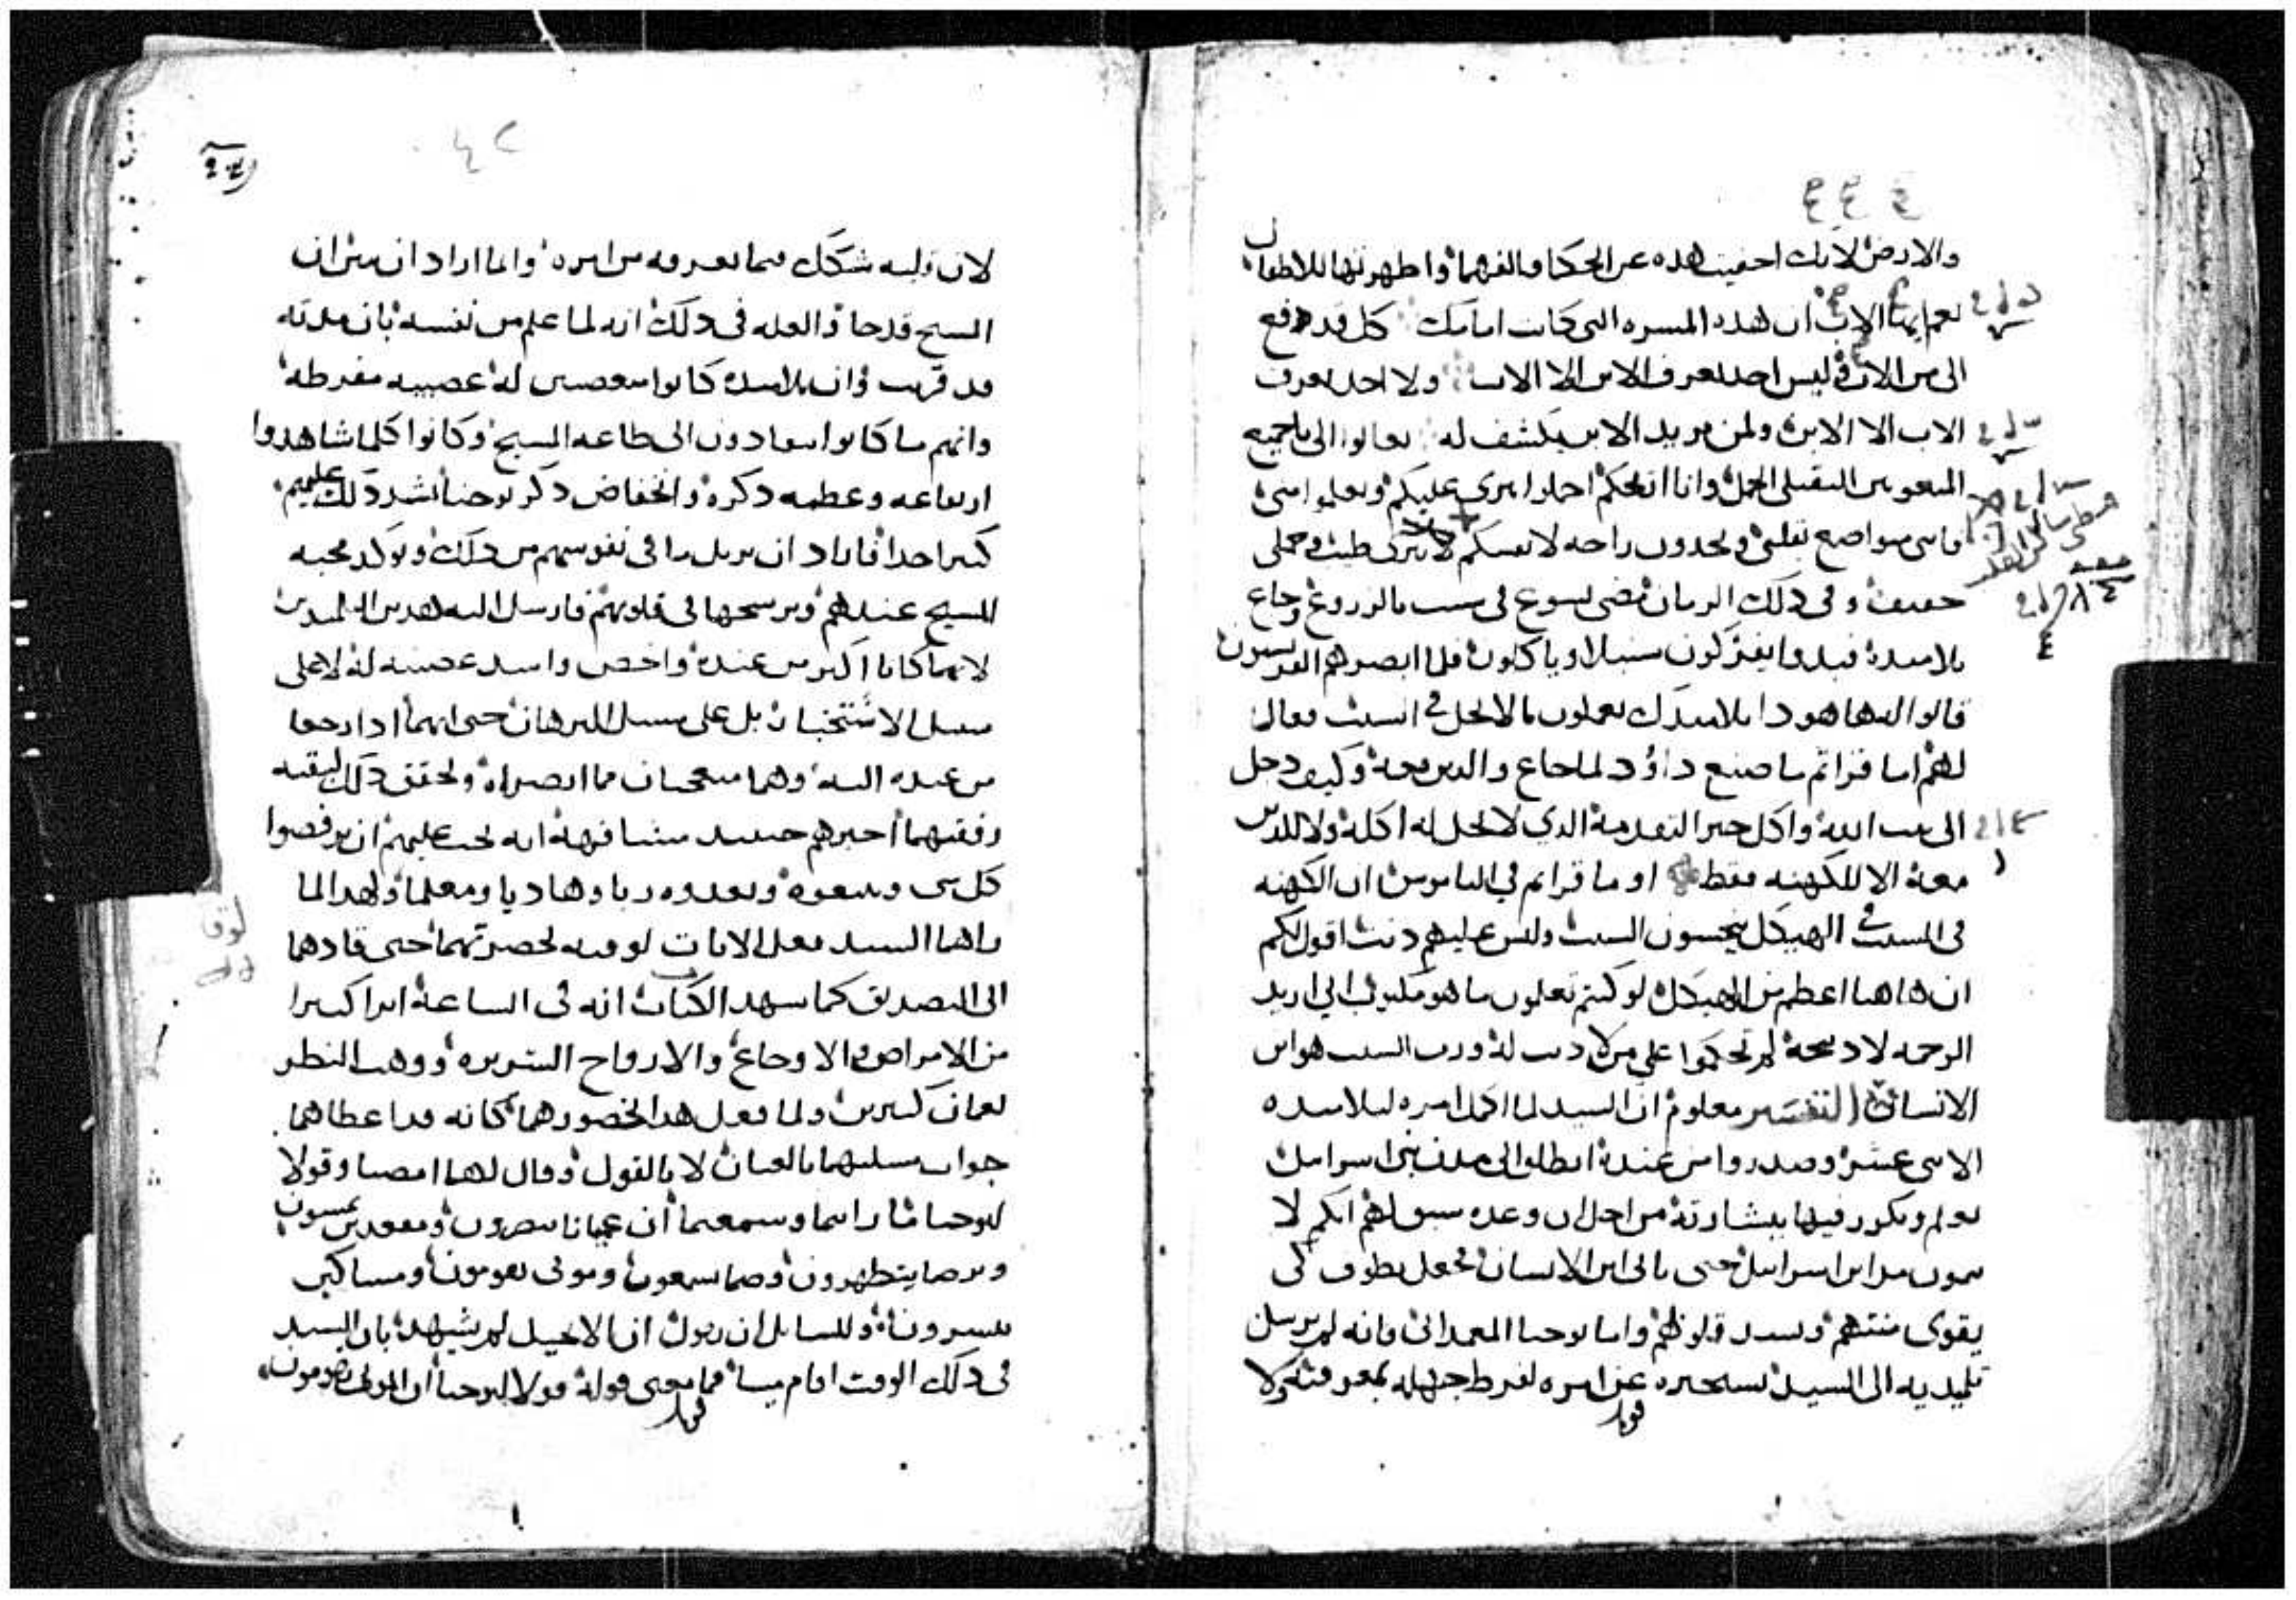 والارض لانك اخفيت هذه عن الحكما والفهما واظهرتها للاطفال
نعم ايها الاب ان هذه المسره التى كانت امامك كل قد دفع
الى من الاب وليس احد يعرف الابن الا الاب ولا احد يعرف
الاب الا الابن ولمن يريد الابن يكشف له تعالوا الى يا جميع
المتعوبين الثقيلى الحمل وانا انيحكم احملوا نيرى عليكم وتعلموا منى
فانى متواضع بقلبى وتجدون راحه لانفسكم لان نيرى طيب وحملى
خفيف وفى ذلك الزمان مضى يسوع فى سبت بالزروع وجاع
تلاميذه فبدوا يفركون سنبلا وياكلون فلما ابصرهم الفريسيون
قالوا له ها هودا تلاميدك يعملون ما لا يحل فى السبت فقال
لهم اما قراتم ما صنع داوُد لما جاع والدين معه وكيف دخل
الى بيت الله واكل خبز التقدمة الدي لا يحل له اكله ولا للدين
معه الا للكهنه فقط او ما قراتم في الناموس ان الكهنه
فى السبت فى الهيكل ينجسون السبت وليس عليهم دنب اقول لكم
ان هاهنا اعظم من الهيكل لو كنتم تعلمون ما هو مكتوب انى اريد
الرحمه لا دبيحة لم تحكموا على من لا دنب له ورب السبت هو ابن
الانسان التفسير معلوم ان السيد لما اكمل امره لتلاميده
الاثنى عشر وصدروا من عنده انطلق الى مدن بنى اسرايل
ليعلم ويكرز فيها ببشارته من اجل ان وعده سبق لهم انكم لا
تتمون مداين اسراييل حتى ياتى ابن الانسان فجعل يطوف لكى
يقوى منتهم ويسدد قلوبهم واما يوحنا المعمدانى فانه لم يرسل
تلميديه الى السيد يستخبره عن امره لفرط جهله بمعرفته ولا
قوبل
٤٢
لان قلبه شكك فيما يعرفه من امره وانما اراد ان يبين ان
المسيح قد جا والعله فى ذلك انه لما علم من نفسه بان مدته
قد قربت وان تلاميده كانوا متعصبين له عصبيه مفرطه
وانهم ما كانوا ينقادون الى طاعه المسيح وكانوا كلما شاهدوا
ارتفاعه وعظمه دكره وانخفاض دكر يوحنا اشتد ذلك عليهم
كثيرا جدا فاراد ان يزيل ما فى نفوسهم من ذلك ويوكد محبه
المسيح عندهم ويرسخها فى قلوبهم فارسل اليه هدين التلميدين
لانهما كانا اكبر من عنده واخص واشد عصبيه له لا على
سبيل الاستخبار بل على سبيل البرهان حتى انهما ادا رجعا
من عنده اليه وهما متعجبان مما ابصراه وتحقق ذلك لبقيه
رفقتهما اخبرهم حينيد مشافهة انه يجب عليهم ان يرفضوا
كل شى ويتبعوه ويعدوه ربا وهاديا ومعلما ولهدا لما
اتاهما السيد فعل الايات لوقته بحضرتهما حتى قادهما
الى التصديق كما يشهد الكتاب انه فى الساعة ابرا كثيرا
من الامراض والاوجاع والارواح الشريره ووهب النظر
لعميان كثيرين ولما فعل هدا بحضورهما كانه قد اعطاهما
جواب مسلتهما بالعيان لا بالقول وقال لهما امضيا وقولا
ليوحنا ما رايتما وسمعتما ان عميانا يبصرون ومقعدين يمشون
وبرصا يتطهرون وصما يسمعون وموتى يقومون ومساكين
يبشرون وللسايل ان يقول ان الانجيل لم يشهد بان السيد
فى ذلك الوقت اقام ميتا فما معنى قوله قولا ليوحنا ان الموتى يقومون
قوبل
لوقا